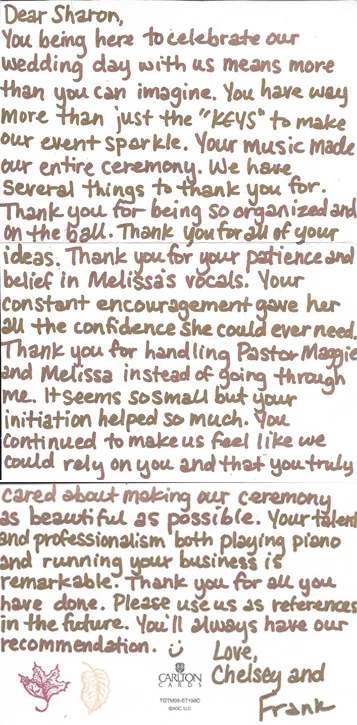 Dear Sharon,
You being here to celebrate our
wedding day with us means more
than you can imagine. You have way
more than just the "KEYS" to make
our event sparkle. Your music made
our entire ceremony. We have
several things to thank you for.
Thank you for being so organized and
on the ball. Thank you for all of your
ideas. Thank you for your patience and
belief in Melissa's vocals. Your
constant encouragement gave her
all the confidence she could ever need.
Thank you for handling Pastor Maggie
and Melissa instead of going through
me. It seems so small but your
initiation helped so much. You
continued to make us feel like we
could rely on you and that you truly
cared about making our ceremony
as beautiful as possible. Your talent
and professionalism both playing piano
and running your business is
remarkable. Thank you for all you
have done. Please use us as references
in the future. You'll always have our
recommendation. :)
Love,
Chelsey and
Frank
CARLTON
CARDS
©AGC, LLC